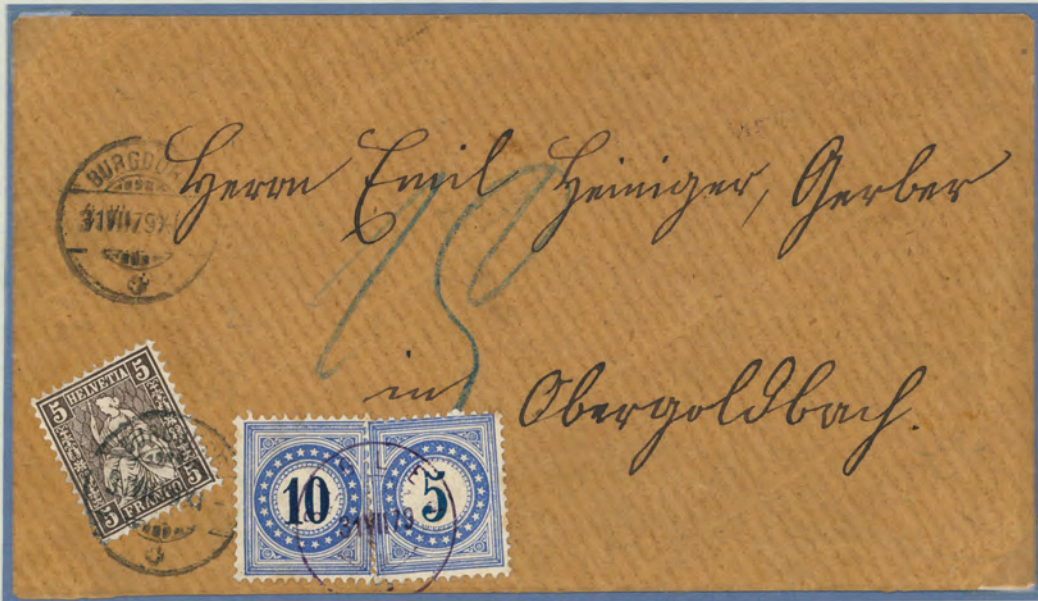 BURGDO
31 VII 79
Herrn Emil Heiniger, Gerber
15
in Obergoldbach.
5 HELVETIA 5
5 FRANCO 5
10
5
31 VII 79